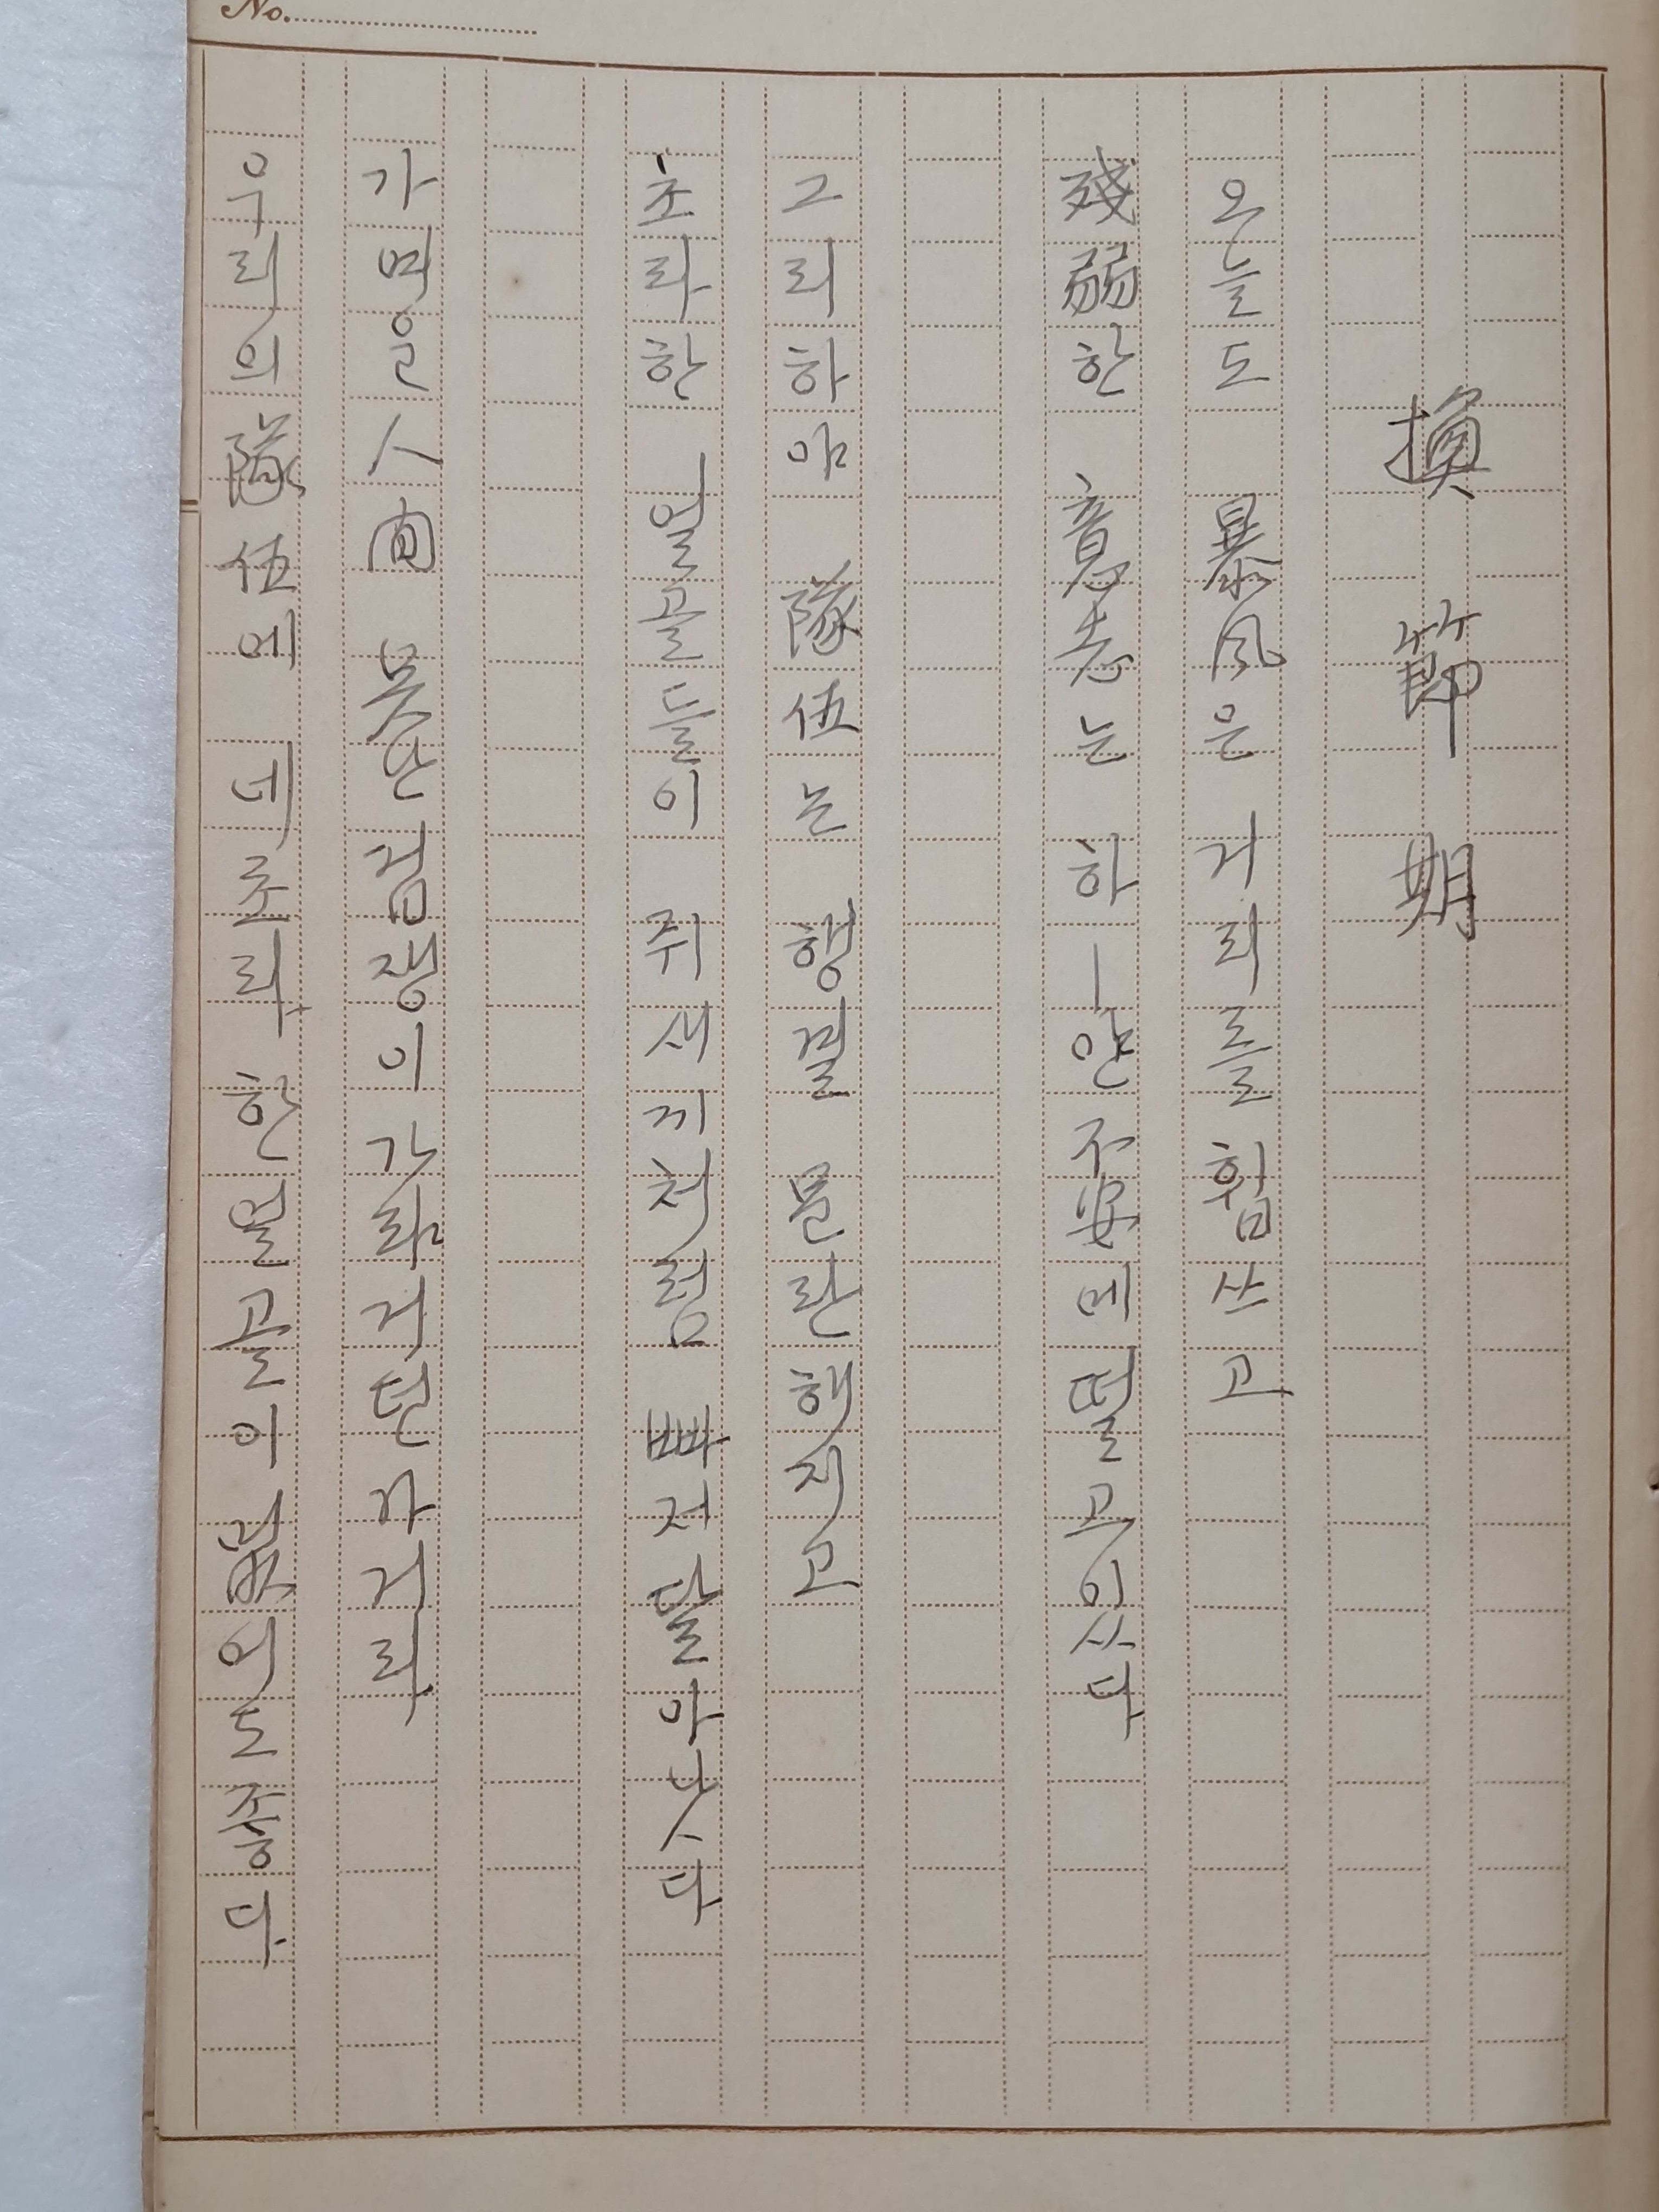 No.
換節期
오늘도 暴風은 거리를 휩쓰고
殘弱한 意志는 하ㅣ얀 不安에 떨고 잇ㅅ다
그리하야 隊伍는 행결 문란해지고
초라한 얼골들이 쥐새끼처럼 빠저 달아나ㅅ다
가면을 人間 못난 겁쟁이가 롸거던 가거라
우리의 隊伍에 네 조리 한 얼골이 없 외도 좋다